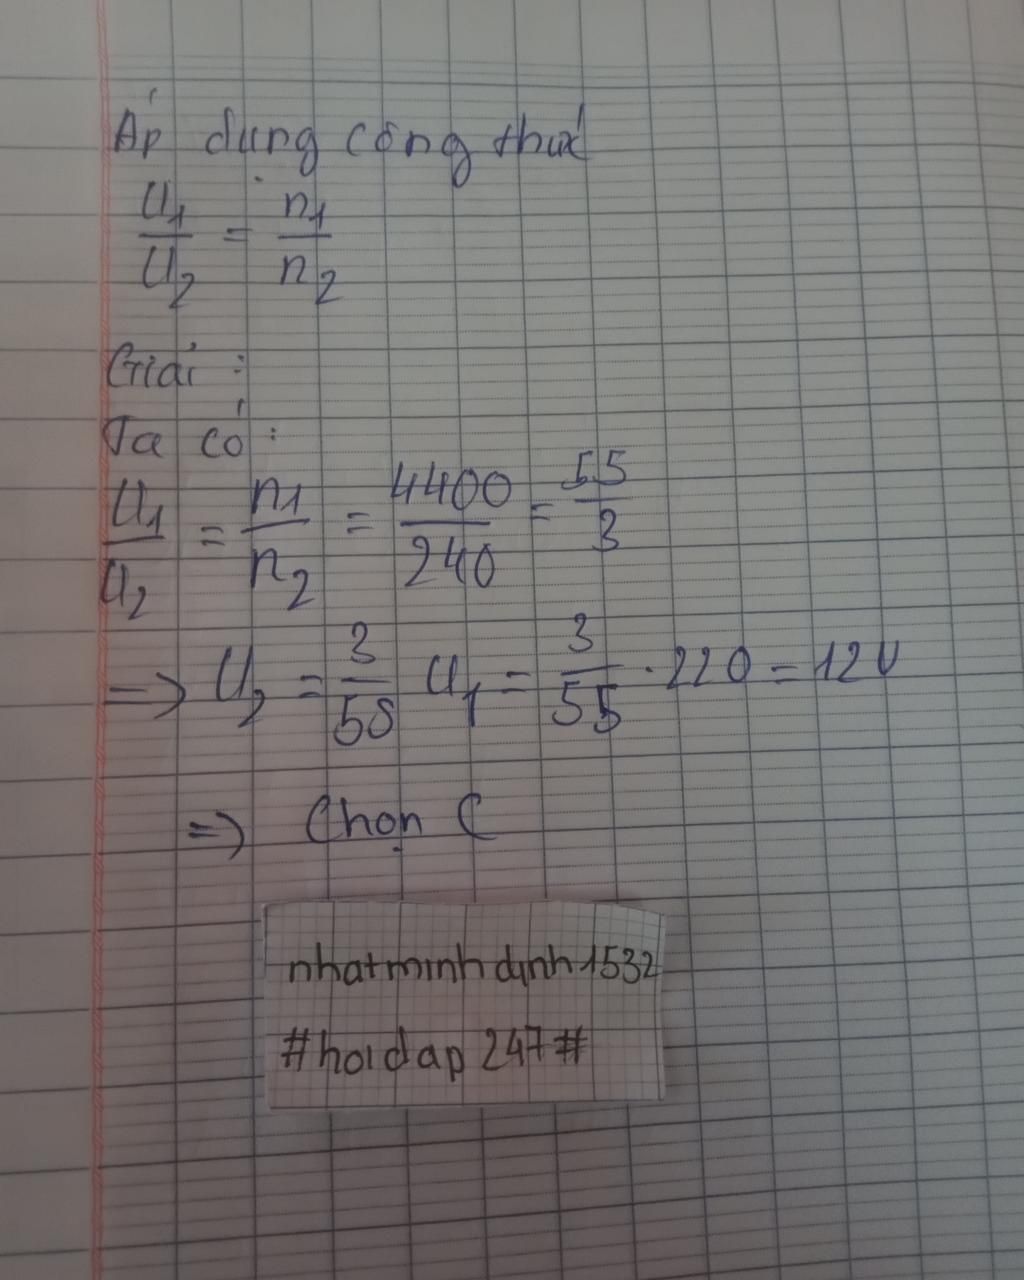 Áp dụng công thức
U1/U2 = n1/n2
Giải :
Ta có :
U1/U2 = n1/n2 = 4400/240 = 55/3
=> U2 = 3/55 U1 = 3/55 . 220 = 12 V
=> Chọn C
nhatminhdinh1532
#hoidap247#